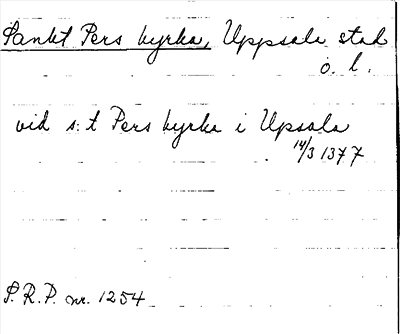 Sankt Pers kyrka, Uppsala stad
o. l.
vid s:t Pers kyrka i Upsala
14/3 1377
S.R.P. nr. 1254